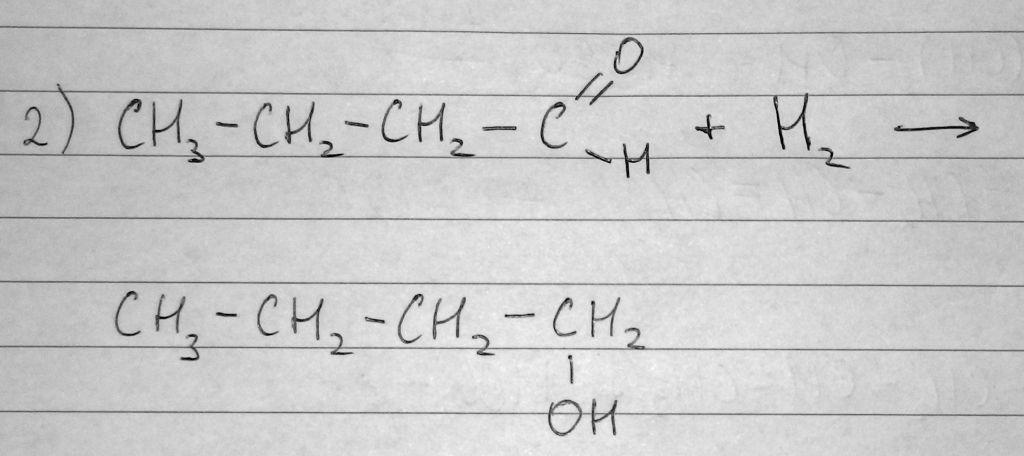 2) CH₃-CH₂-CH₂-C(=O)-H + H₂ →
CH₃-CH₂-CH₂-CH₂
|
OH